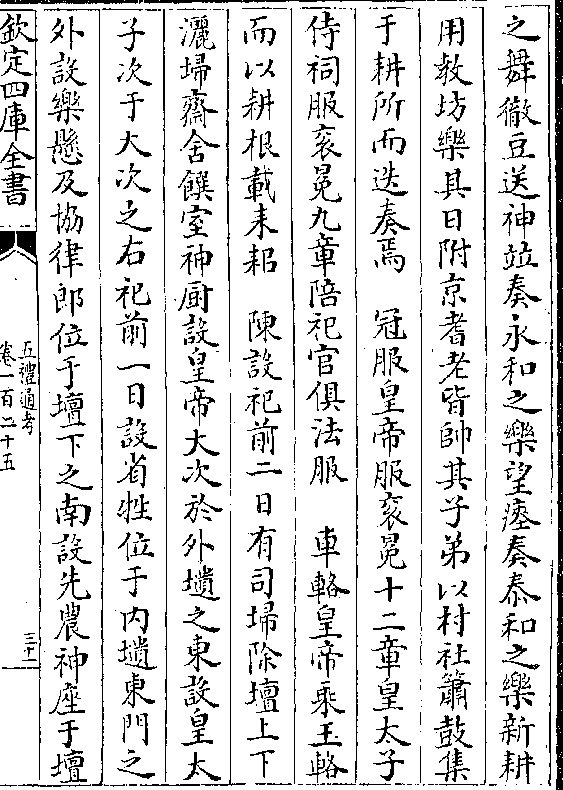 之舞徹豆送神竝奏永和之樂望瘞奏泰和之樂新耕
用教坊樂具日附京耆老皆帥其子弟以村社簫鼓集
于耕所而迭奏焉　冠服皇帝服袞冕十二章皇太子
侍祠服袞冕九章陪祀官俱法服　車輅皇帝乘玉輅
而以耕根載耒耜　陳設祀前二日有司埽除壇上下
灑埽齋舍饌室神厨設皇帝大次於外壝之東設皇太
子次于大次之右祀前一日設省牲位于内壝東門之
外設樂懸及協律郎位于壇下之南設先農神座于壇
欽定四庫全書
五禮通考
卷一百二十五
三十一